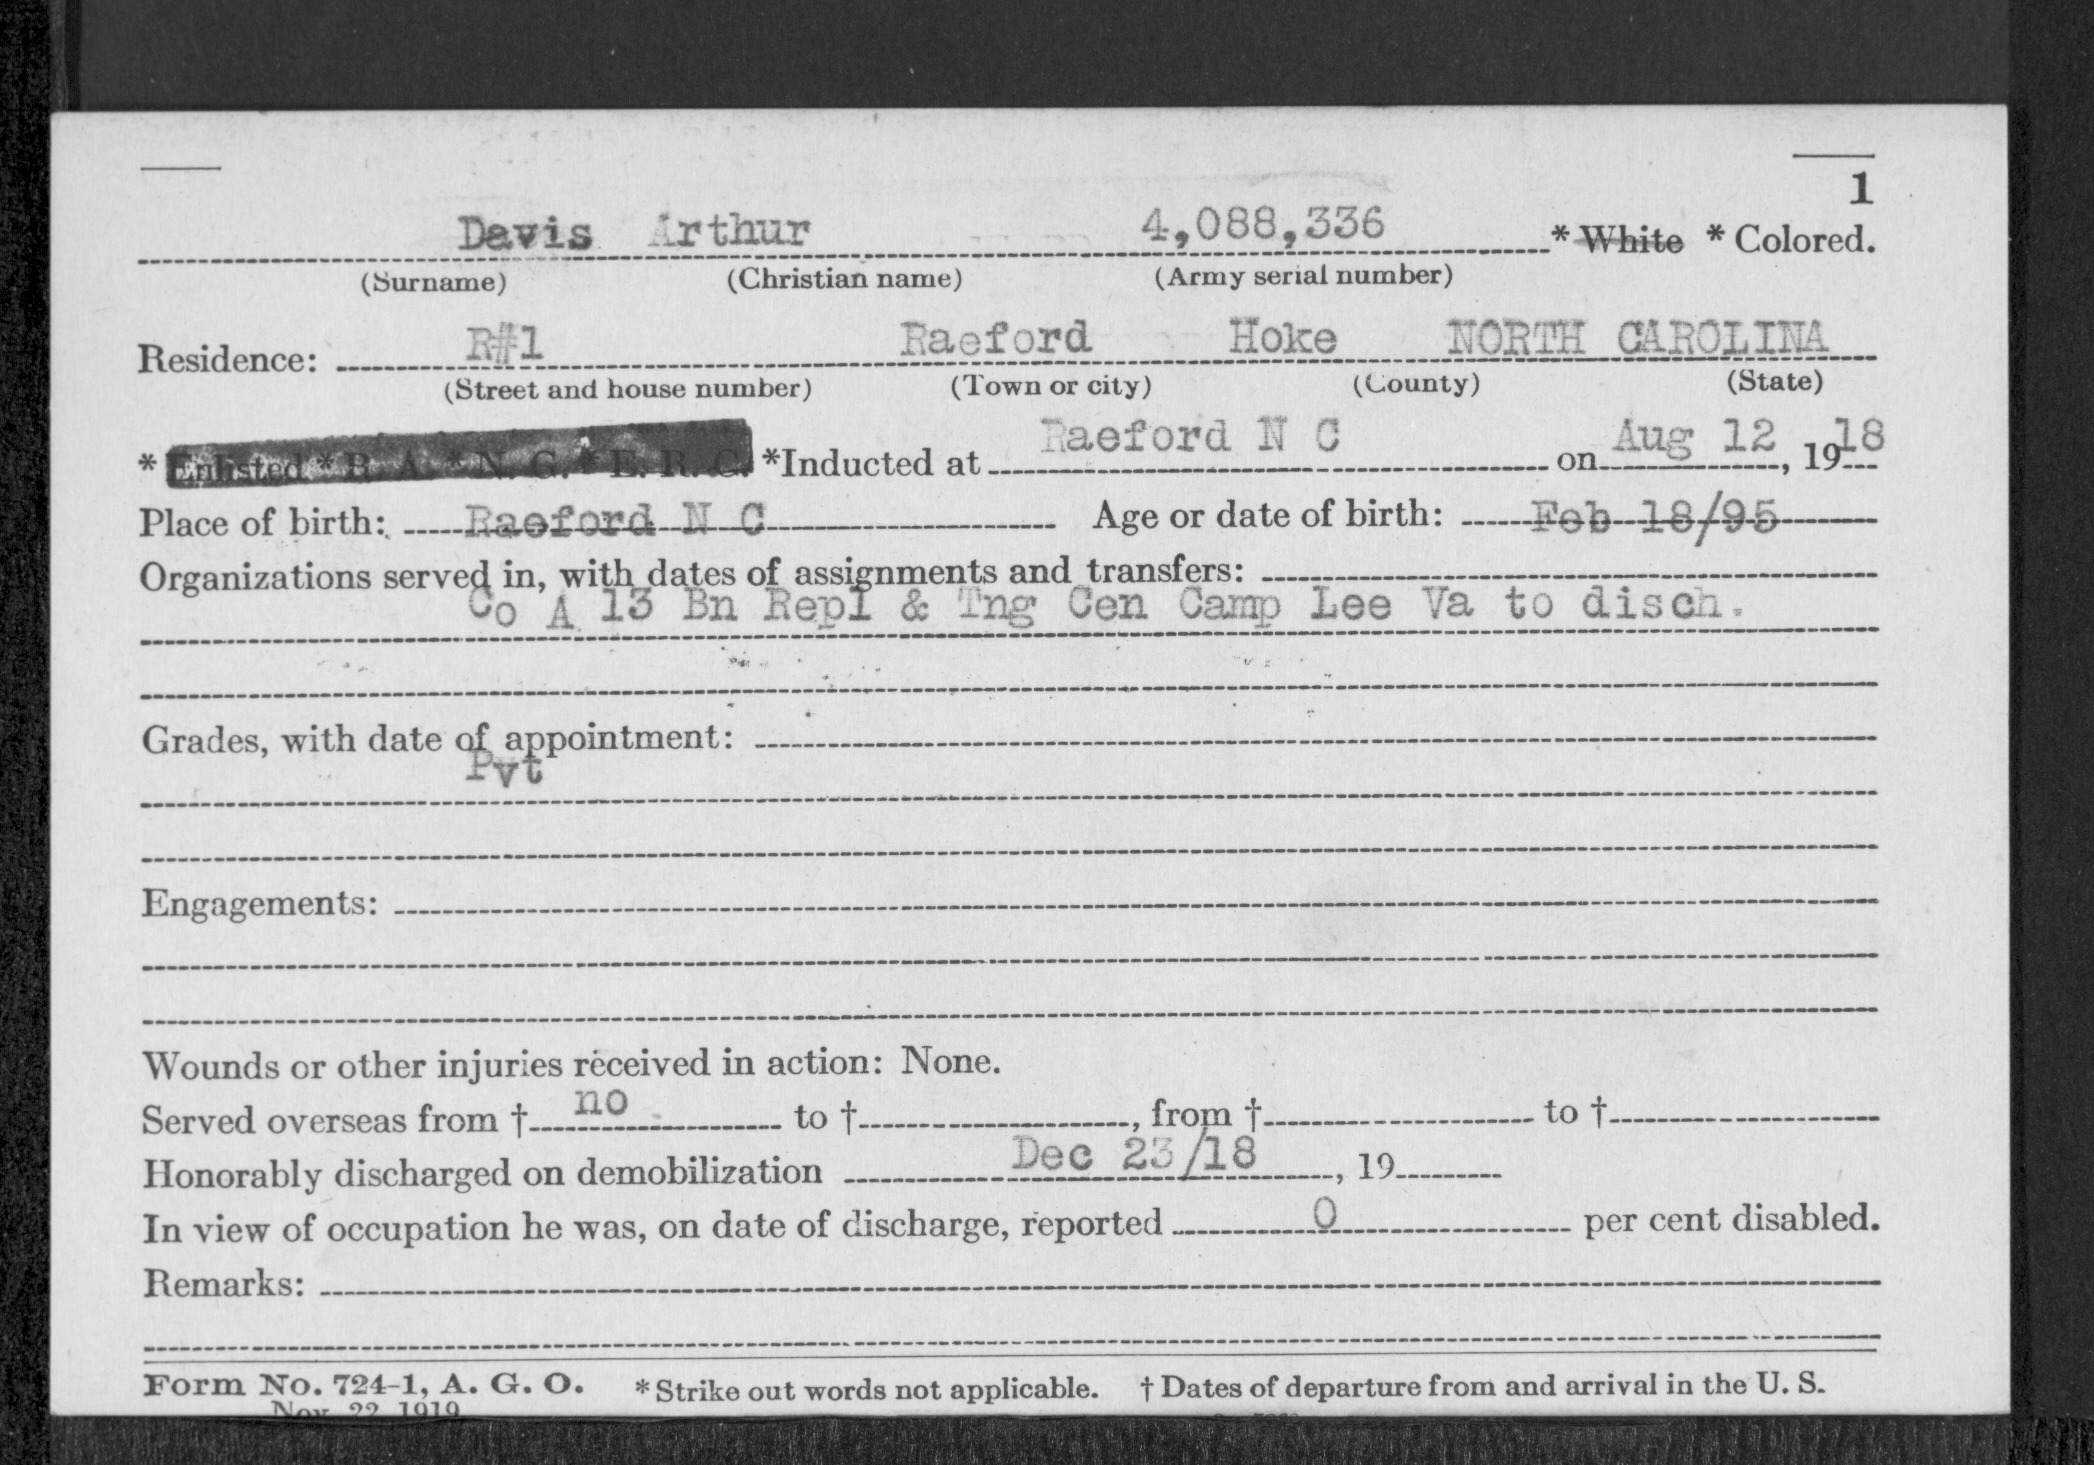 1
Davis Arthur 4,088,336 * White * Colored.
(Surname) (Christian name) (Army serial number)
Residence: R#1 Raeford Hoke NORTH CAROLINA
(Street and house number) (Town or city) (County) (State)
* Enlisted * R. A. * N. G. * E. R. C. *Inducted at Raeford N C on Aug 12, 1918
Place of birth: Raeford N C Age or date of birth: Feb 18/95
Organizations served in, with dates of assignments and transfers:
Co A 13 Bn Repl & Tng Cen Camp Lee Va to disch.
Grades, with date of appointment:
Pvt
Engagements:
Wounds or other injuries received in action: None.
Served overseas from † no to †, from † to †
Honorably discharged on demobilization Dec 23/18, 19
In view of occupation he was, on date of discharge, reported 0 per cent disabled.
Remarks:
Form No. 724-1, A. G. O. *Strike out words not applicable. † Dates of departure from and arrival in the U. S.
Nov. 22, 1919